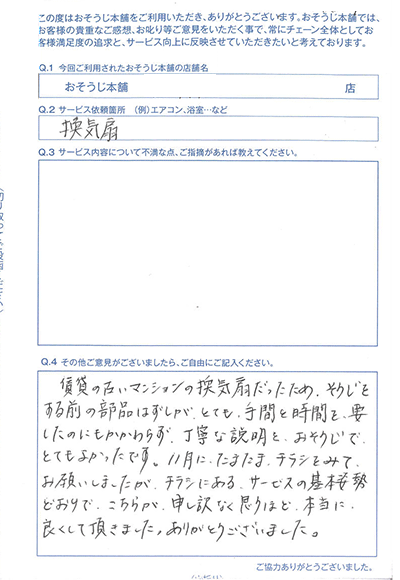 この度はおそうじ本舗をご利用いただき、ありがとうございます。おそうじ本舗では、
お客様の貴重なご感想、お叱り等ご意見をいただく事で、常にチェーン全体としてお
客様満足度の追求と、サービス向上に反映させていただきたいと考えております。
Q.1 今回ご利用されたおそうじ本舗の店舗名
おそうじ本舗 店
Q.2 サービス依頼箇所 (例)エアコン、浴室…など
換気扇
Q.3 サービス内容について不満な点、ご指摘があれば教えてください。
Q.4 その他ご意見がございましたら、ご自由にご記入ください。
賃貸の古いマンションの換気扇だったため、そうじを
する前の部品はずしが、とても、手間と時間を、要
したのにもかかわらず、丁寧な説明と、おそうじで、
とてもよかったです。11月に、たまたま、チラシをみて、
お願いしましたが、チラシにある、サービスの基本姿勢
どおりで、こちらが、申し訳なく思うほど、本当に、
良くして頂きました。ありがとうございました。
ご協力ありがとうございました。